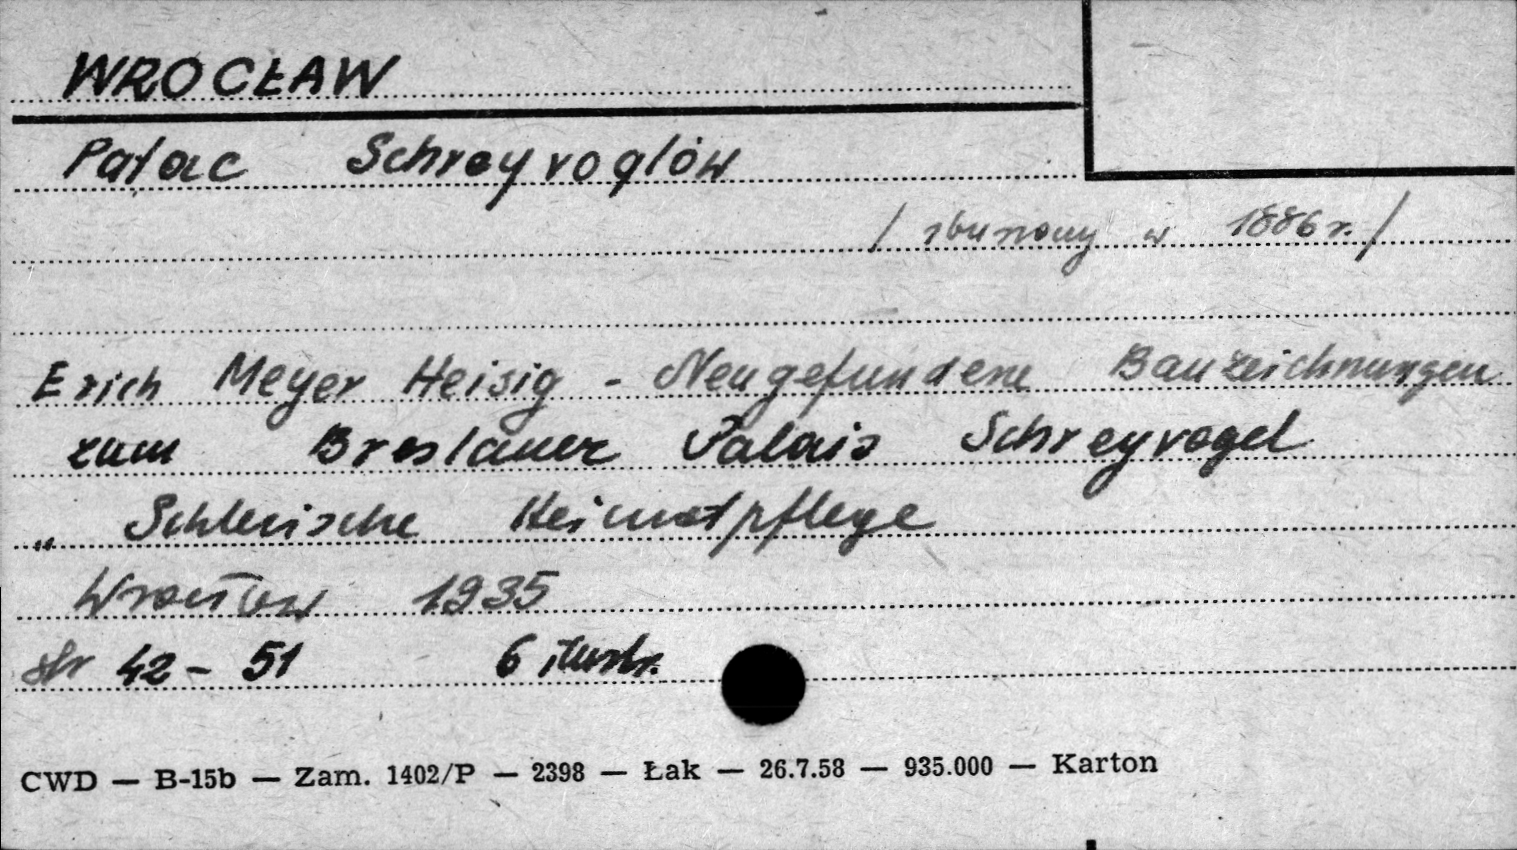 WROCŁAW
Pałac Schreyvoglów
/ zburzony w 1886 r. /
Erich Meyer Heisig - Neugefundene Bauzeichnungen
zum Breslauer Palais Schreyvogel
„ Schlesische Heimatpflege
Wrocław 1935
str 42 - 51 6 ilustr.
CWD — B-15b — Zam. 1402/P — 2398 — Łak — 26.7.58 — 935.000 — Karton